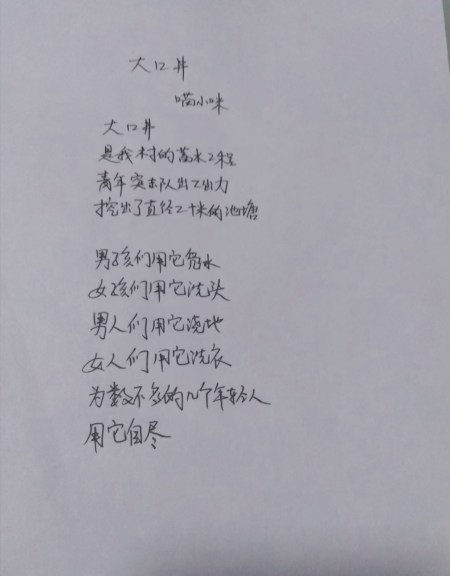 大口井
喵小咪
大口井
是我村的蓄水工程
青年突击队出工出力
挖出了直径二十米的池塘
男孩们用它凫水
女孩们用它洗头
男人们用它浇地
女人们用它洗衣
为数不多的几个年轻人
用它自尽